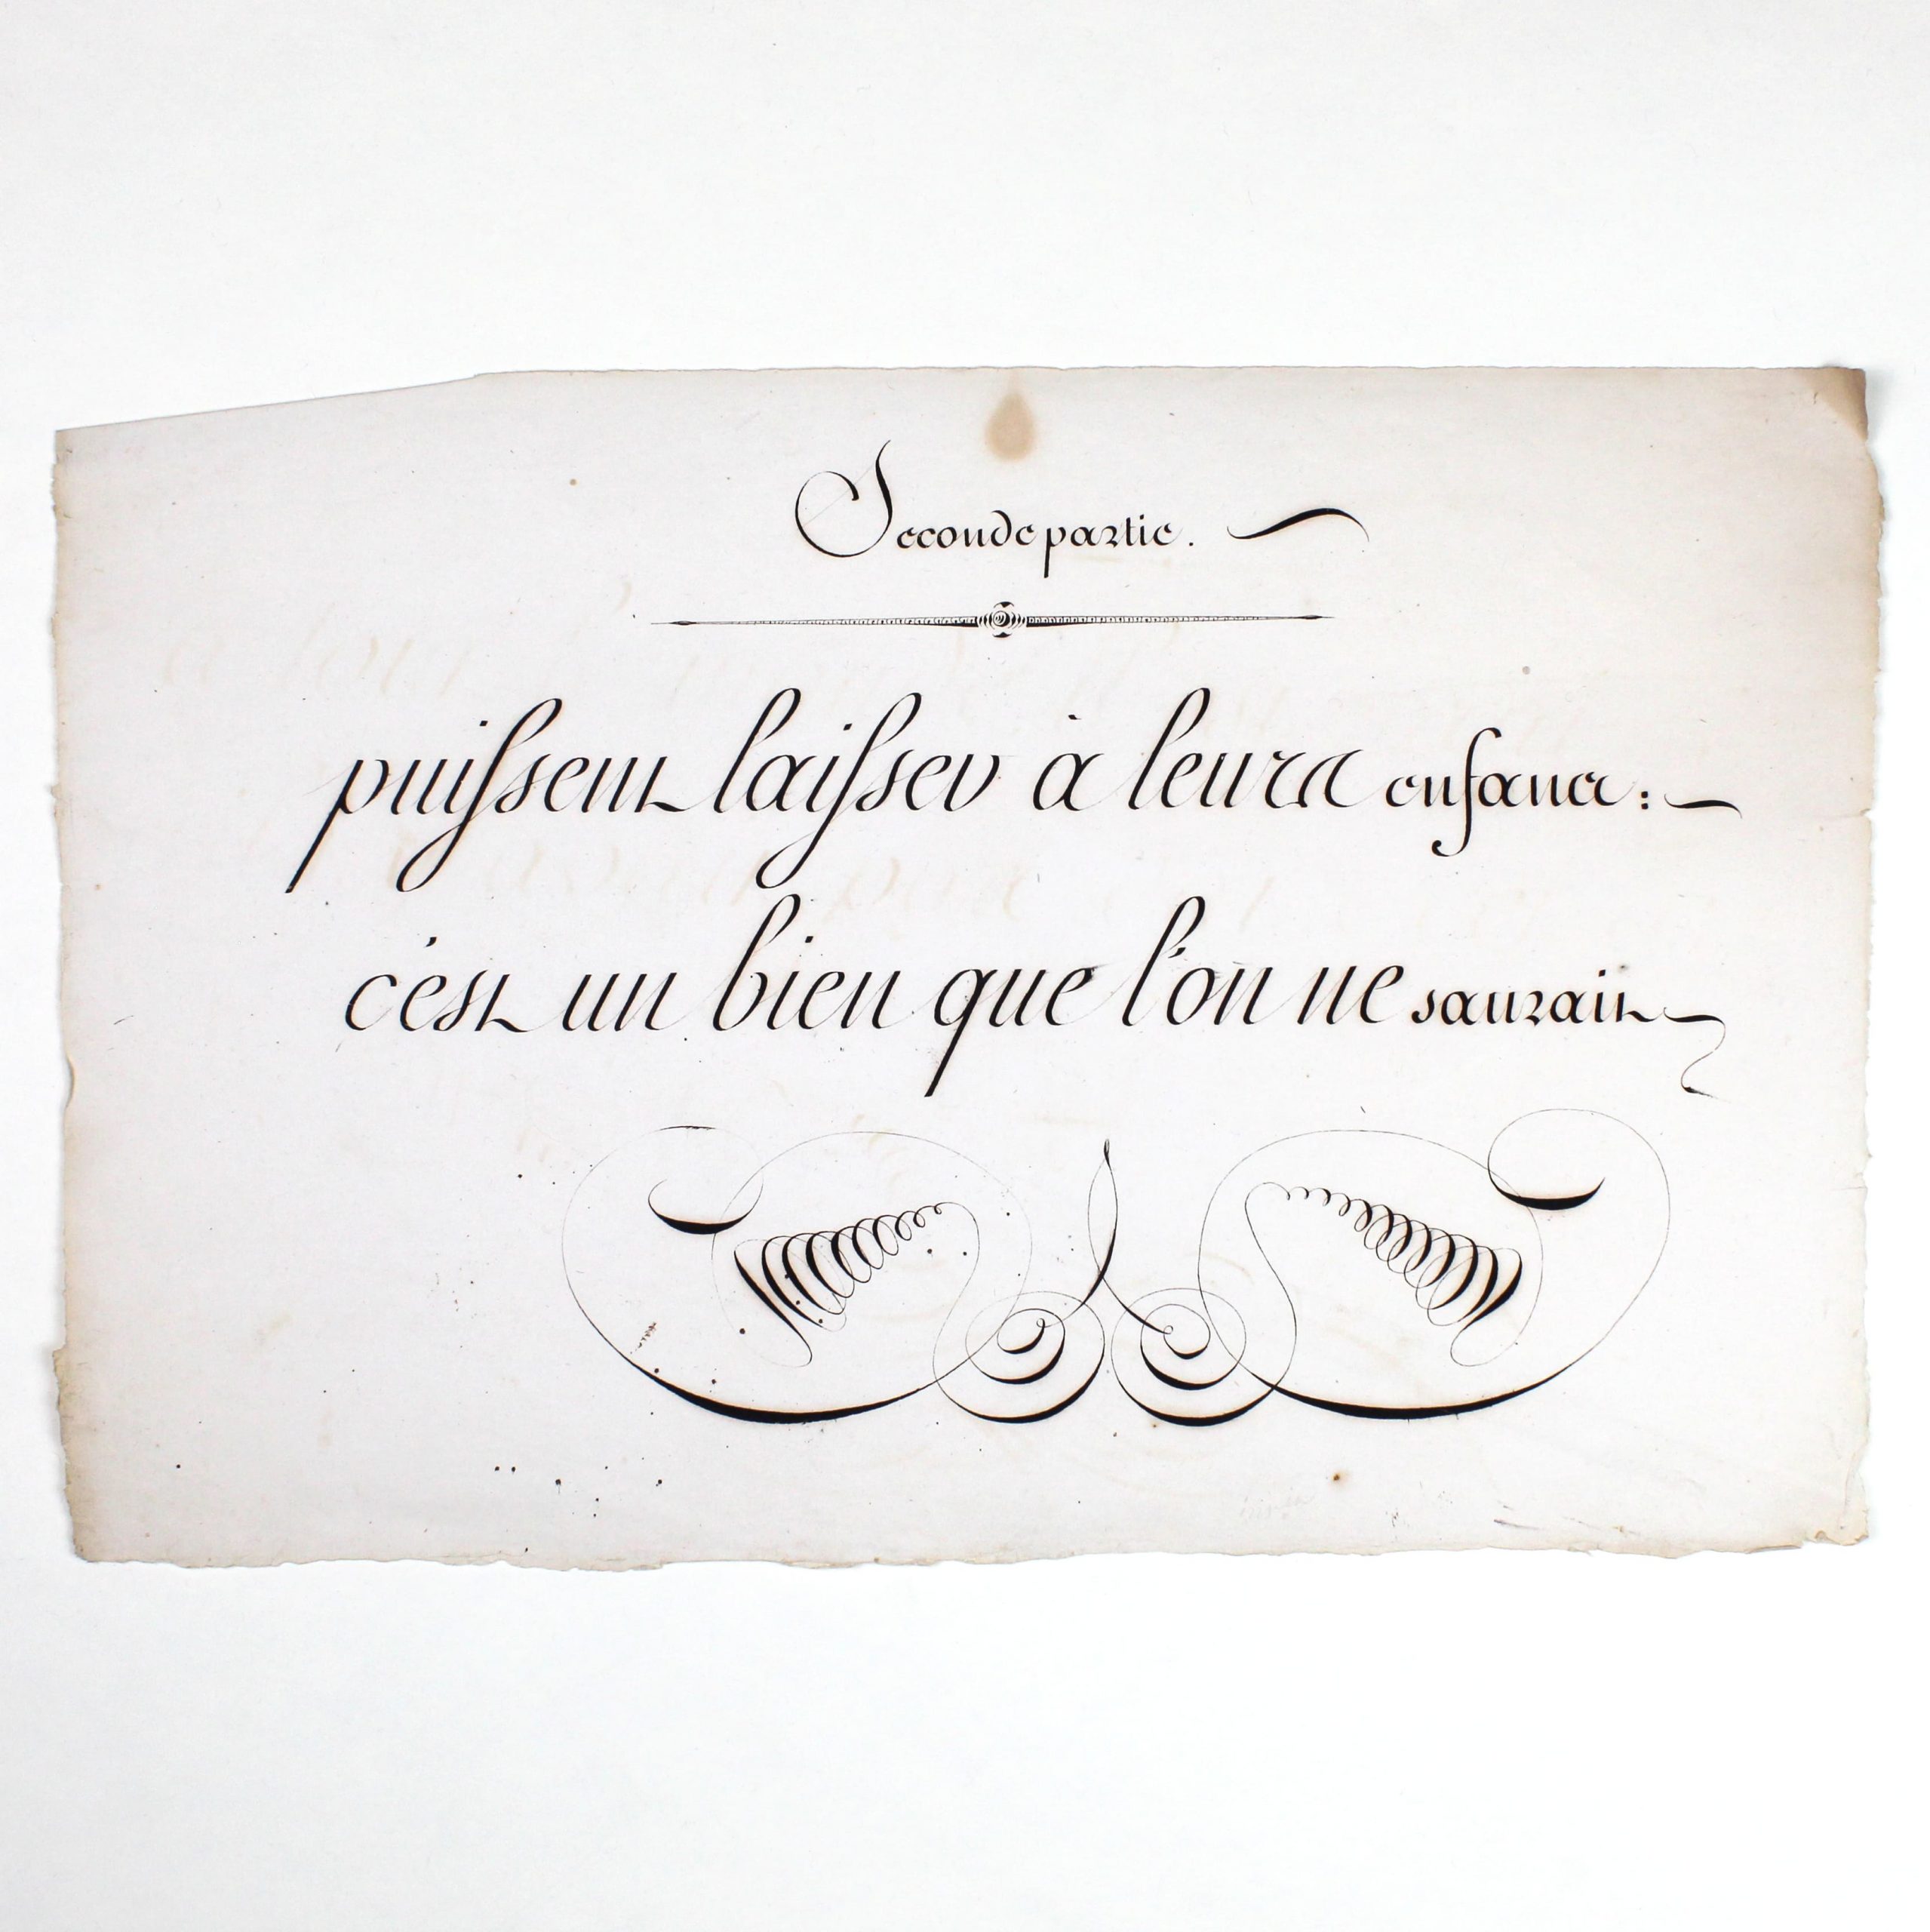 Seconde partie.
puissent laisser à leurs enfans:
c'est un bien que l'on ne saurait